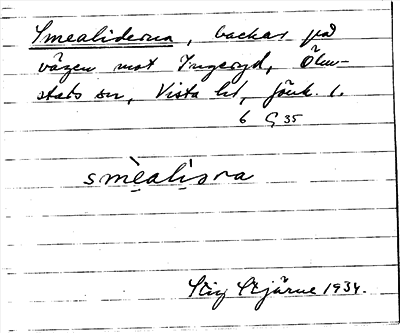 Smealiderna, backar på
vägen mot Ingeryd, Ölm-
stads sn, Vista hd, Jönk. l.
6 G 35
smèalịọna
Stig Stjärne 1934.